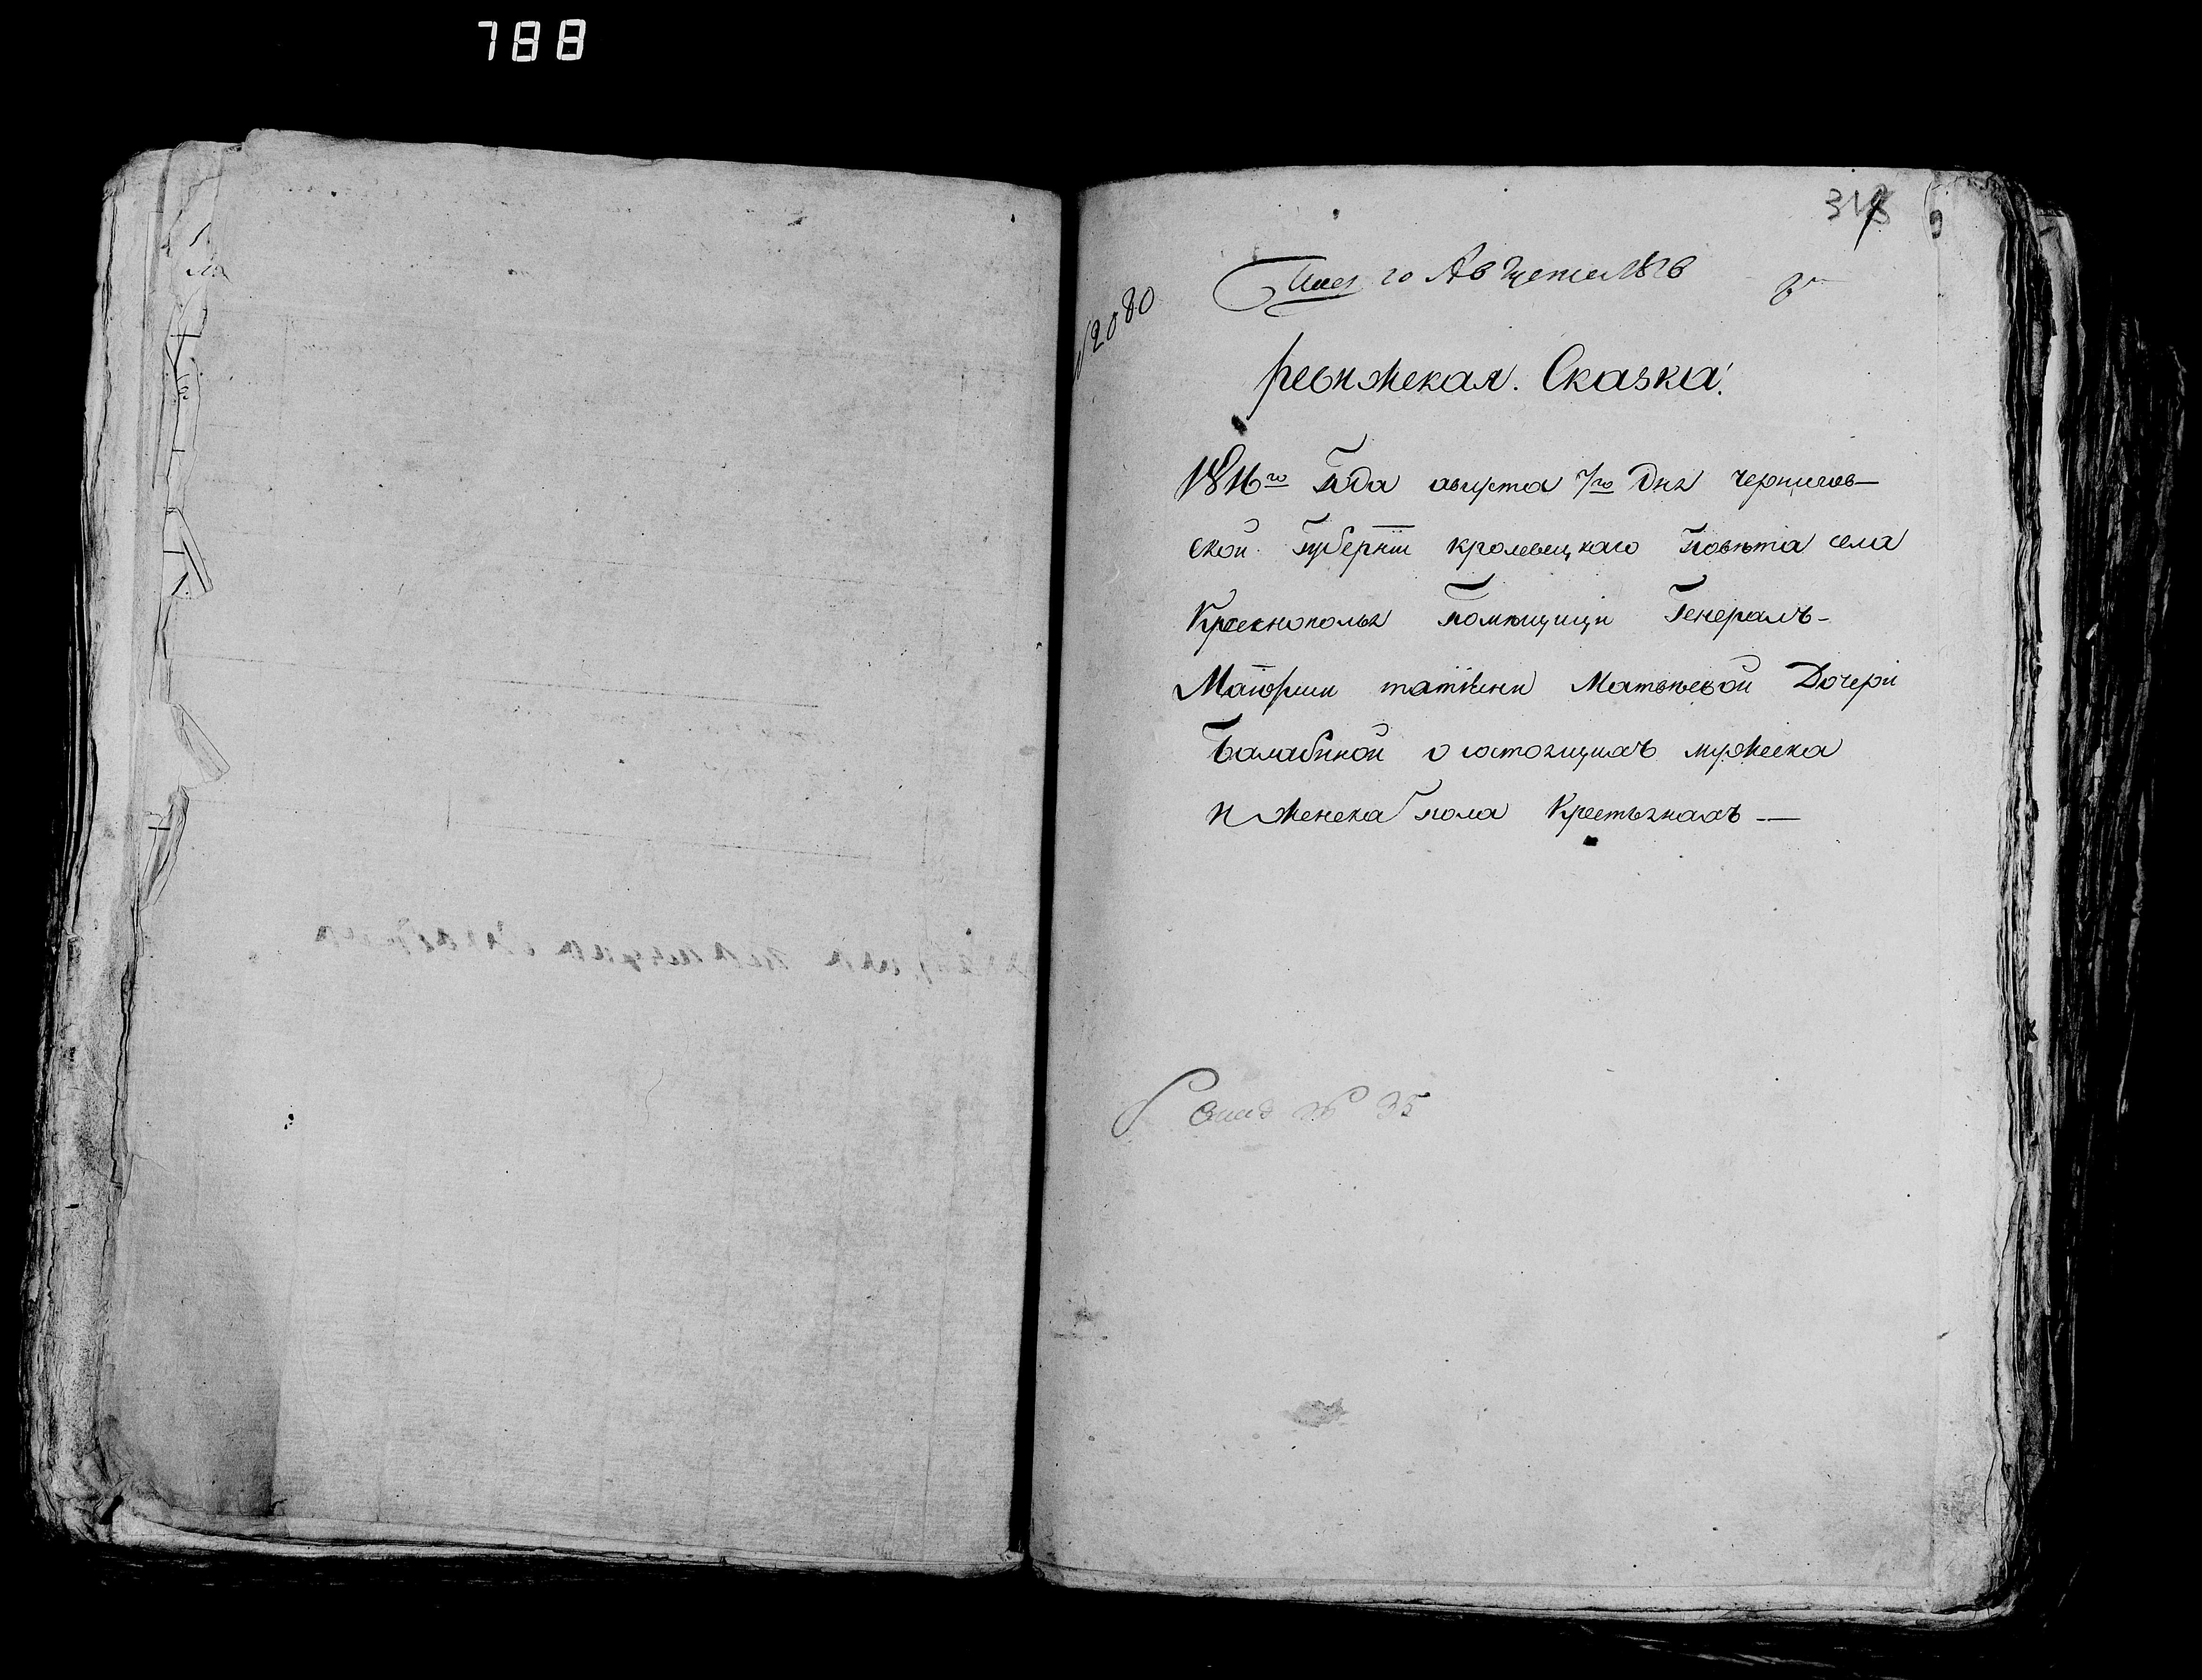 788
№ 2080
20 Августа 1816
Ревижская. Сказка.
1816го Года августа 7го Дня Чернигов–
ской Губернїи кролевецкаго Повѣта села
Краснополья Помѣщици Генералъ–
Маїорши татїяни Матвѣевой Дочери
Балабиной о состоящихъ мужеска
и женска пола Крестьянахъ —
№ 35